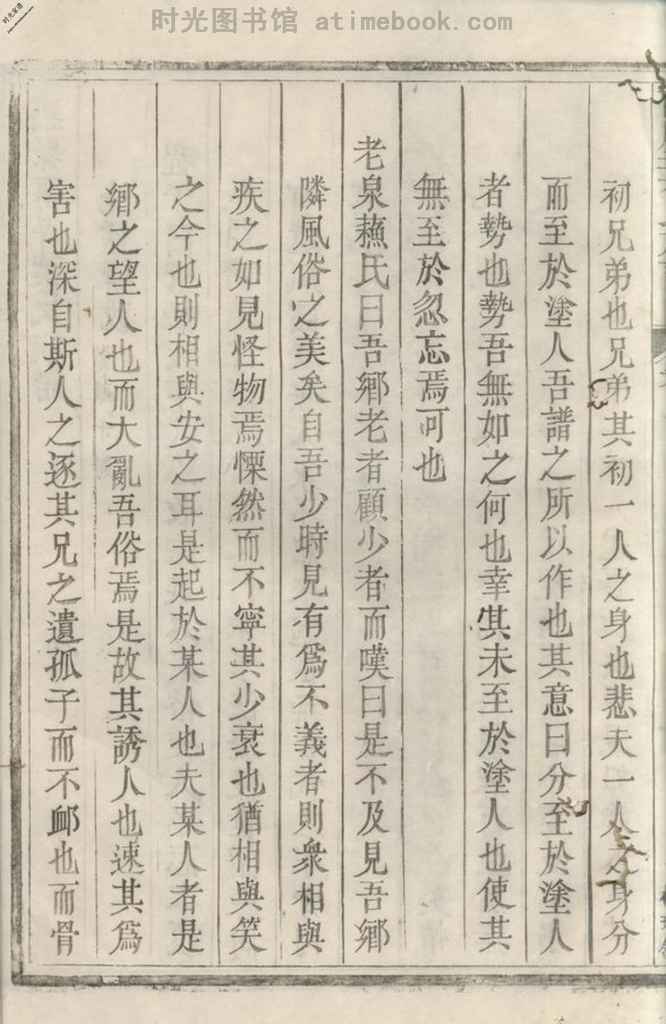 时光图书馆 atimebook.com
初兄弟也兄弟其初一人之身也悲夫一人之身分
而至於塗人吾譜之所以作也其意曰分至於塗人
者勢也勢吾無如之何也幸其未至於塗人也使其
無至於忽忘焉可也
老泉蘓氏曰吾鄉老者顧少者而嘆曰是不及見吾鄉
隣風俗之美矣自吾少時見有爲不義者則衆相與
疾之如見怪物焉慄然而不寧其少衰也猶相與笑
之今也則相與安之耳是起於某人也夫某人者是
鄉之望人也而大亂吾俗焉是故其誘人也速其爲
害也深自斯人之逐其兄之遺孤子而不䘏也而骨